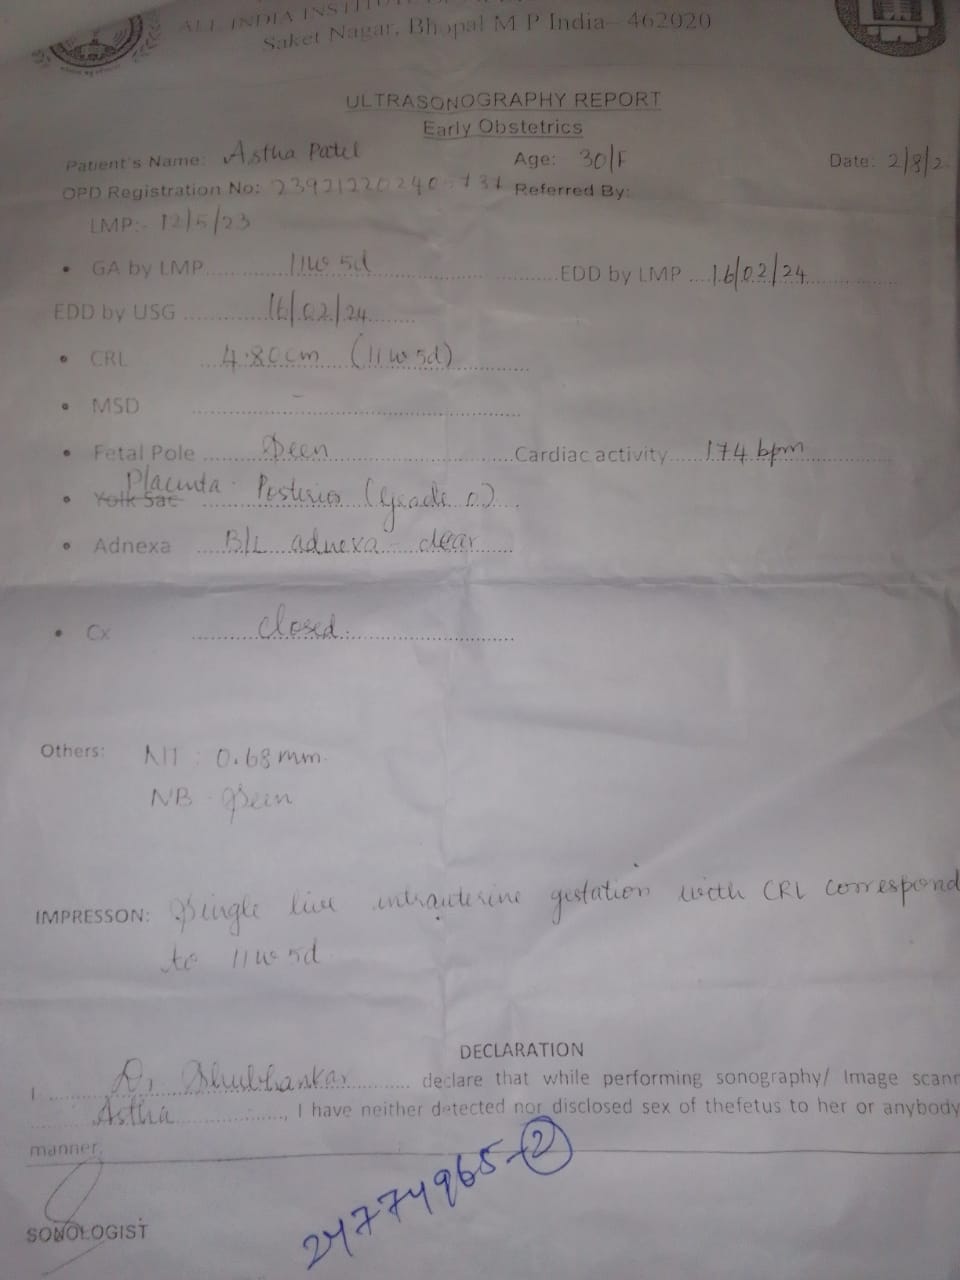 ALL INDIA INSTITUTE OF
Saket Nagar, Bhopal M P India– 462020
ULTRASONOGRAPHY REPORT
Early Obstetrics
Patient's Name: Astha Patel Age: 30/F Date: 2/8/2
OPD Registration No: Referred By:
LMP:- 12/5/23
• GA by LMP 11w 5d EDD by LMP 16/02/24
EDD by USG 16/02/24
• CRL 4.80cm (11w 5d)
• MSD –
• Fetal Pole Seen Cardiac activity 174 bpm
• Yolk Sac Placenta - Posterior (Grade 0)
• Adnexa B/L adnexa - clear
• Cx closed.
Others: NT : 0.68 mm
NB - Seen
IMPRESSON: Single live intrauterine gestation with CRL correspond
to 11w 5d
DECLARATION
I Dr Shubhankar declare that while performing sonography/ Image scann
Astha , I have neither detected nor disclosed sex of thefetus to her or anybody
manner.
SONOLOGIST
24774965-2